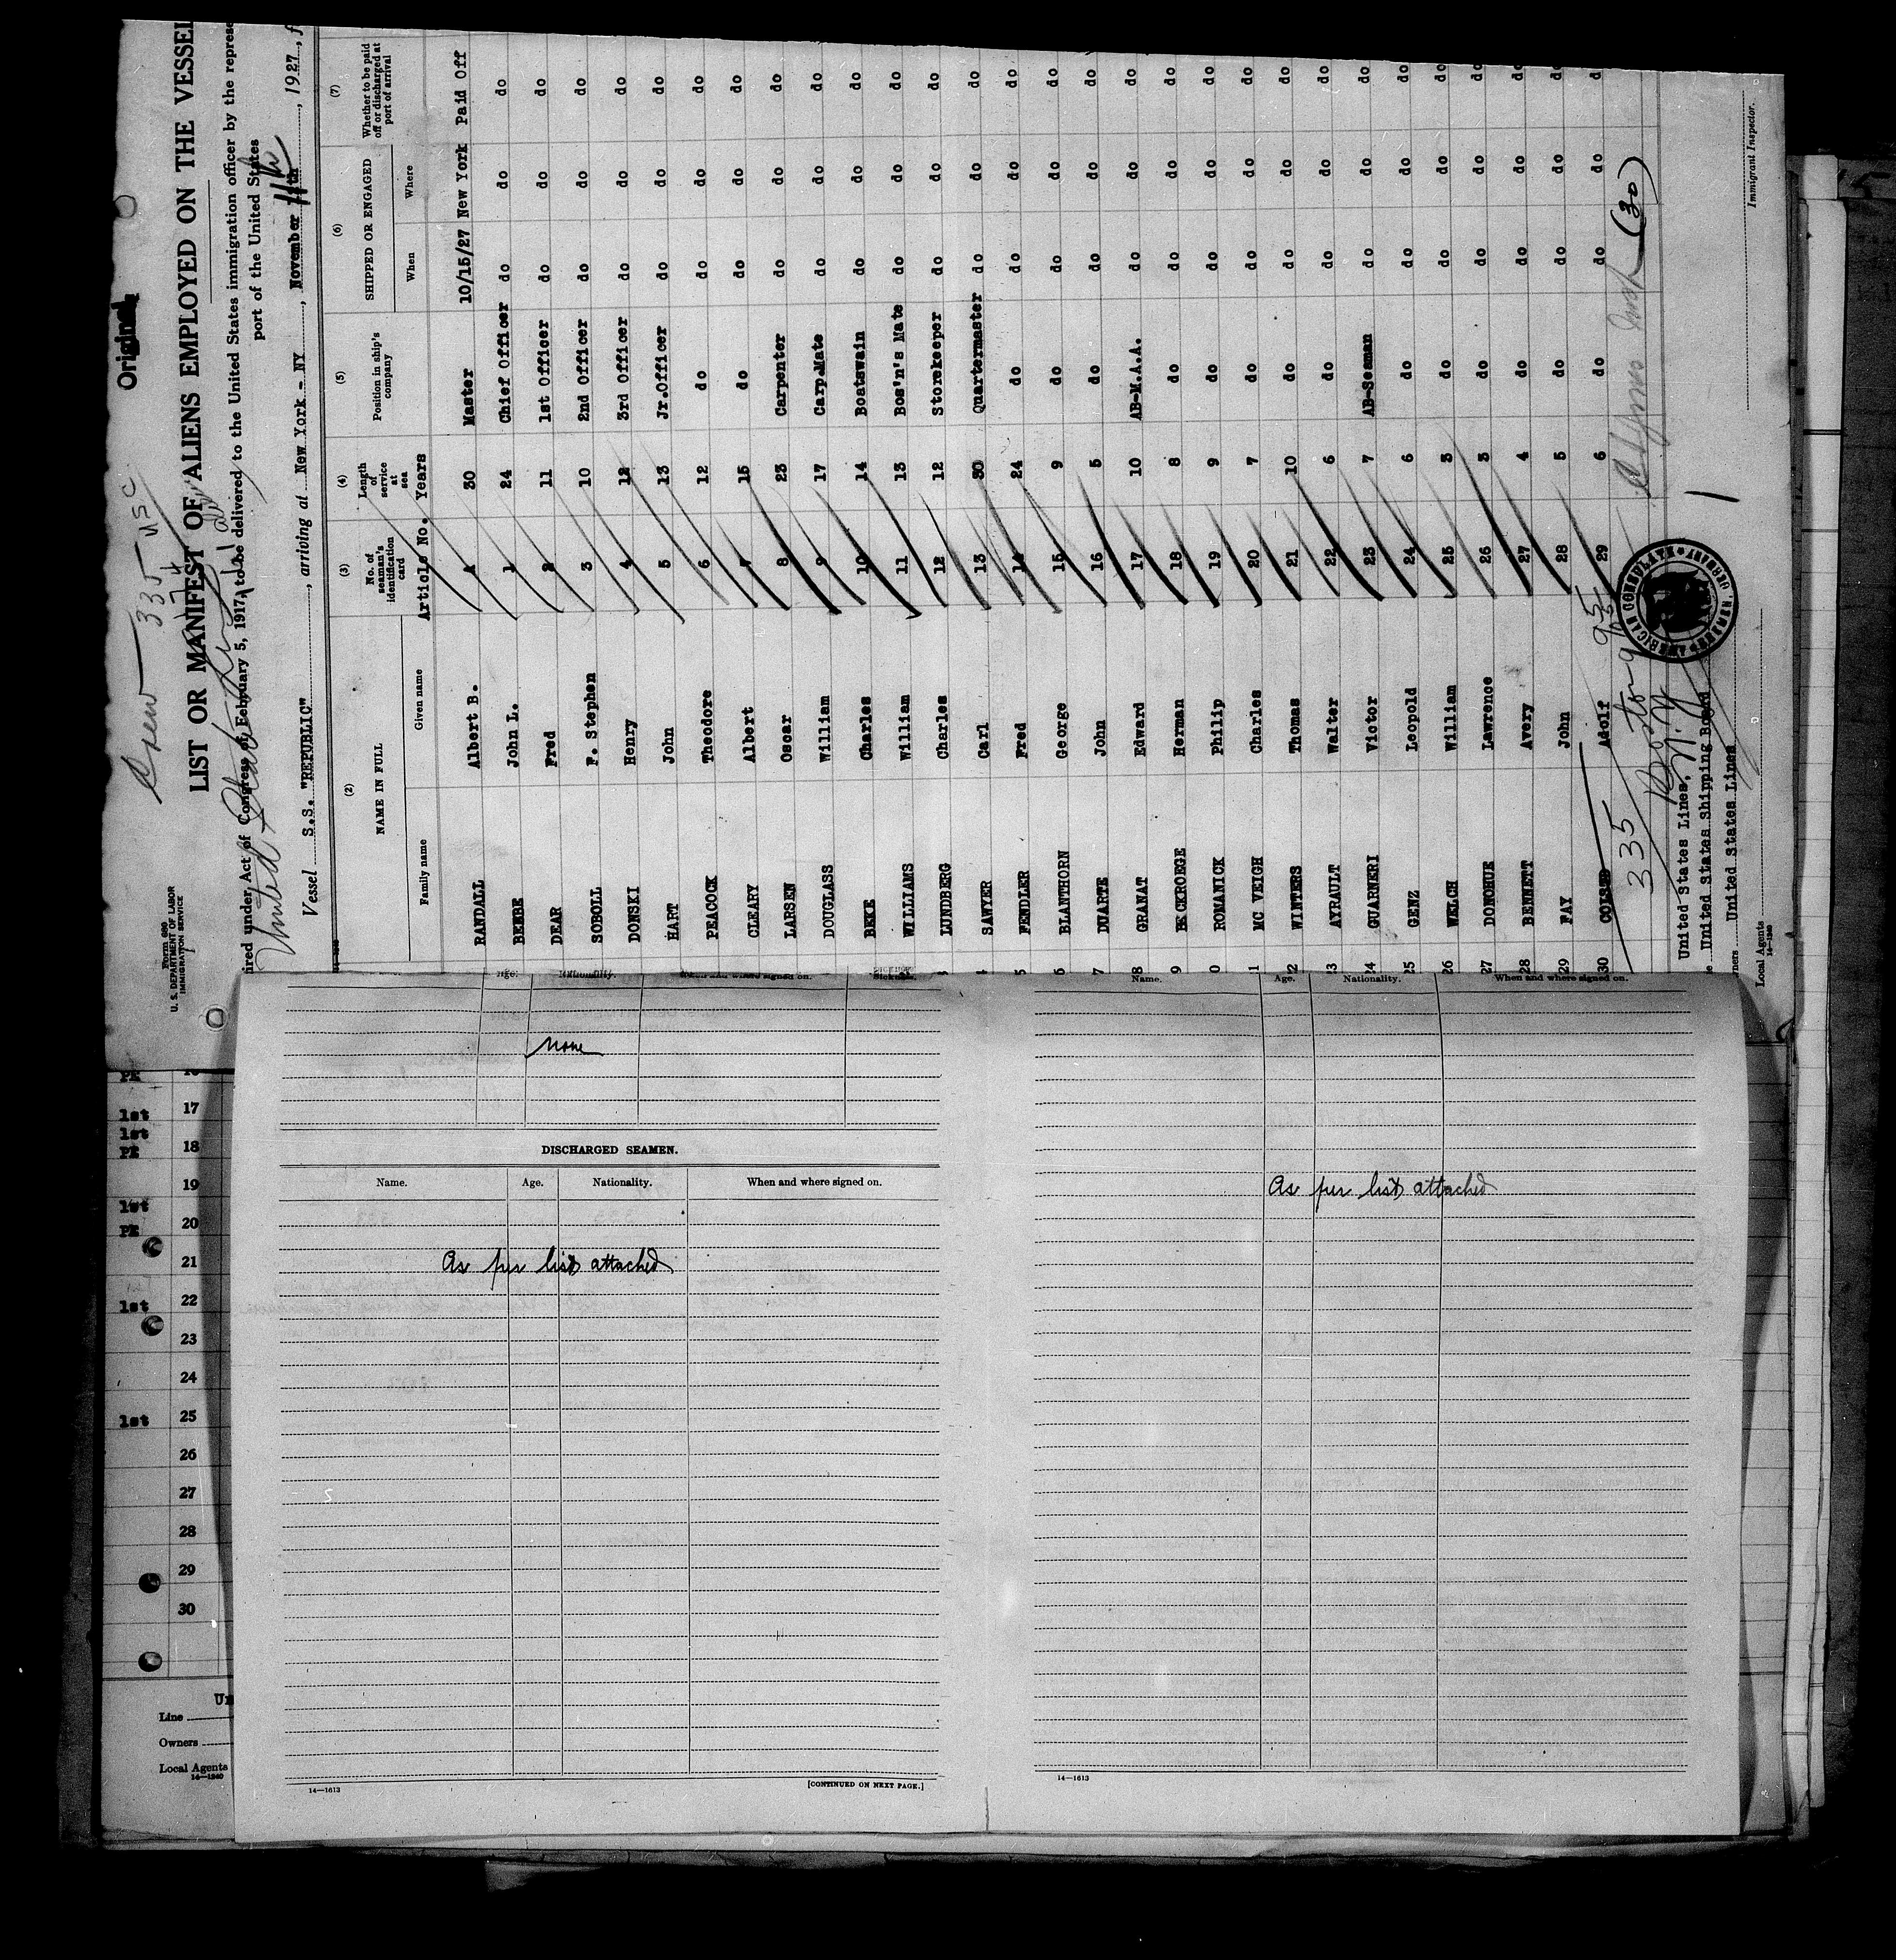 Original
Crew 335 USC
Form 680
U. S. DEPARTMENT OF LABOR
IMMIGRATION SERVICE
LIST OR MANIFEST OF ALIENS EMPLOYED ON THE VESSEL
ired under Act of Congress of February 5, 1917, to be delivered to the United States immigration officer by the represe
port of the United States
United States Lines
Vessel S.S. "REPUBLIC", arriving at New York - NY, November 11th, 1927, f
(2) (3) (4) (5) (6) (7)
NAME IN FULL No. of seaman's identification card Length of service at sea Position in ship's company SHIPPED OR ENGAGED Whether to be paid off or discharged at port of arrival
Family name Given name Article No. Years When Where
RANDALL Albert B. 30 Master 10/15/27 New York Paid Off
BEEBE John L. 1 24 Chief Officer do do do
DEAR Fred 2 11 1st Officer do do do
SOBOLL F. Stephen 3 10 2nd Officer do do do
DONSKI Henry 4 12 3rd Officer do do do
HART John 5 13 Jr.Officer do do do
PEACOCK Theodore 6 12 do do do do
CLEARY Albert 7 15 do do do do
LARSEN Oscar 8 23 Carpenter do do do
DOUGLASS William 9 17 Carp.Mate do do do
BEKE Charles 10 14 Boatswain do do do
WILLIAMS William 11 13 Bos'n's Mate do do do
LUNDBERG Charles 12 12 Storekeeper do do do
4 SAWYER Carl 13 30 Quartermaster do do do
5 FENDLER Fred 14 24 do do do do
6 BLANTHORN George 15 9 do do do do
7 DUARTE John 16 5 do do do do
8 GRANAT Edward 17 10 AB-M.A.A. do do do
9 BECKROEGE Herman 18 8 do do do do
0 ROMANICK Philip 19 9 do do do do
1 MC VEIGH Charles 20 7 do do do do
2 WINTERS Thomas 21 10 do do do do
3 AYRAULT Walter 22 6 do do do do
24 GUARNERI Victor 23 7 AB-Seaman do do do
25 GENZ Leopold 24 6 do do do do
26 WELCH William 25 3 do do do do
27 DONOHUE Lawrence 26 3 do do do do
28 BENNETT Avery 27 4 do do do do
29 FAY John 28 5 do do do do
30 Adolf 29 6 do do do do
335 Boston 9 95
(30)
United States Lines,
United States Shipping Board
United States Lines
Local Agents
14-1240
Immigrant Inspector.
AMERICAN CONSULATE
Age. Nationality. When and where signed on. Sickness.
none
DISCHARGED SEAMEN.
Name. Age. Nationality. When and where signed on.
As per list attached
14—1613
[CONTINUED ON NEXT PAGE.]
Name. Age. Nationality. When and where signed on.
As per list attached
14—1613
PE
1st 17
1st
PE 18
19
1st
20
PE
21
1st 22
23
24
1st 25
26
27
28
29
30
Un
Line
Owners
Local Agents
14—1240